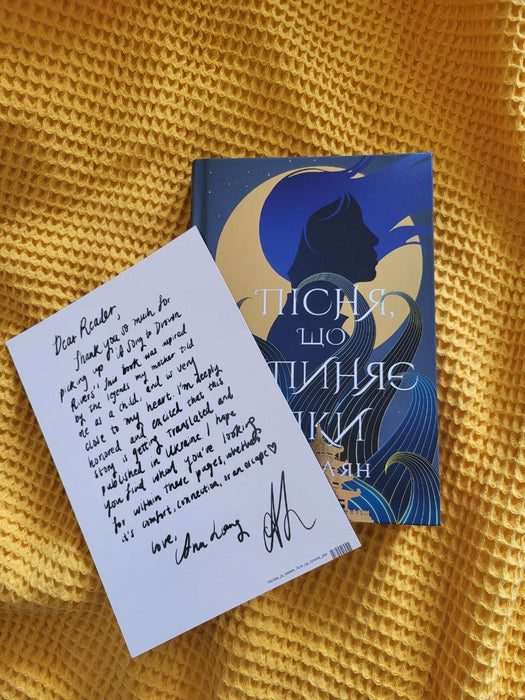 ПІСНЯ,
ЩО
ПИНЯЄ
ІКИ
ЛЯН
Dear Reader,
Thank you so much for
picking up "A Song to Drown
Rivers". This book was inspired
by the legends my mother told
me as a child, and is very
close to my heart. I'm deeply
honored and excited that this
story is getting translated and
published in Ukraine. I hope
you find what you're looking
for within these pages, whether
it's comfort, connection, or an escape ♡
Love,
Ann Liang